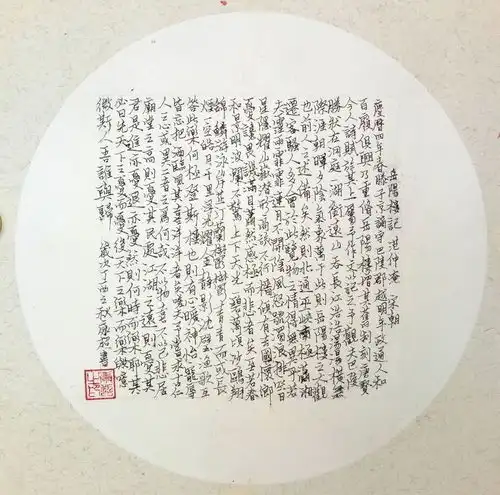 岳陽樓記 范仲淹 宋朝
慶曆四年春滕子京謫守巴陵郡越明年政通人和
百廢俱興乃重修岳陽樓增其舊制刻唐賢
今人詩賦於其上屬予作文以記之予觀夫巴陵
勝狀在洞庭一湖銜遠山吞長江浩浩湯湯橫無
際涯朝暉夕陰氣象萬千此則岳陽樓之大觀
也前人之述備矣然則北通巫峽南極瀟湘
遷客騷人多會於此覽物之情得無異乎若
夫霪雨霏霏連月不開陰風怒號濁浪排空日
星隱耀山岳潛形商旅不行有去國懷鄉
憂讒畏譏滿目蕭然感極而悲者矣至若春
和景明波瀾不驚上下天光一碧萬頃沙鷗翔
集錦鱗游泳岸芷汀蘭郁郁青青而或長
煙一空皓月千里浮光躍金靜影沈璧漁歌互
答此樂何極登斯樓也則有心曠神怡寵辱
皆忘把酒臨風其喜洋洋者矣嗟夫予嘗求古仁
人之心或異二者之為何哉不以物喜不以己悲居
廟堂之高則憂其民處江湖之遠則憂其
君是進亦憂退亦憂然則何時而樂耶其
必曰先天下之憂而憂後天下之樂而樂歟噫
微斯人吾誰與歸 歲次丁酉之秋書